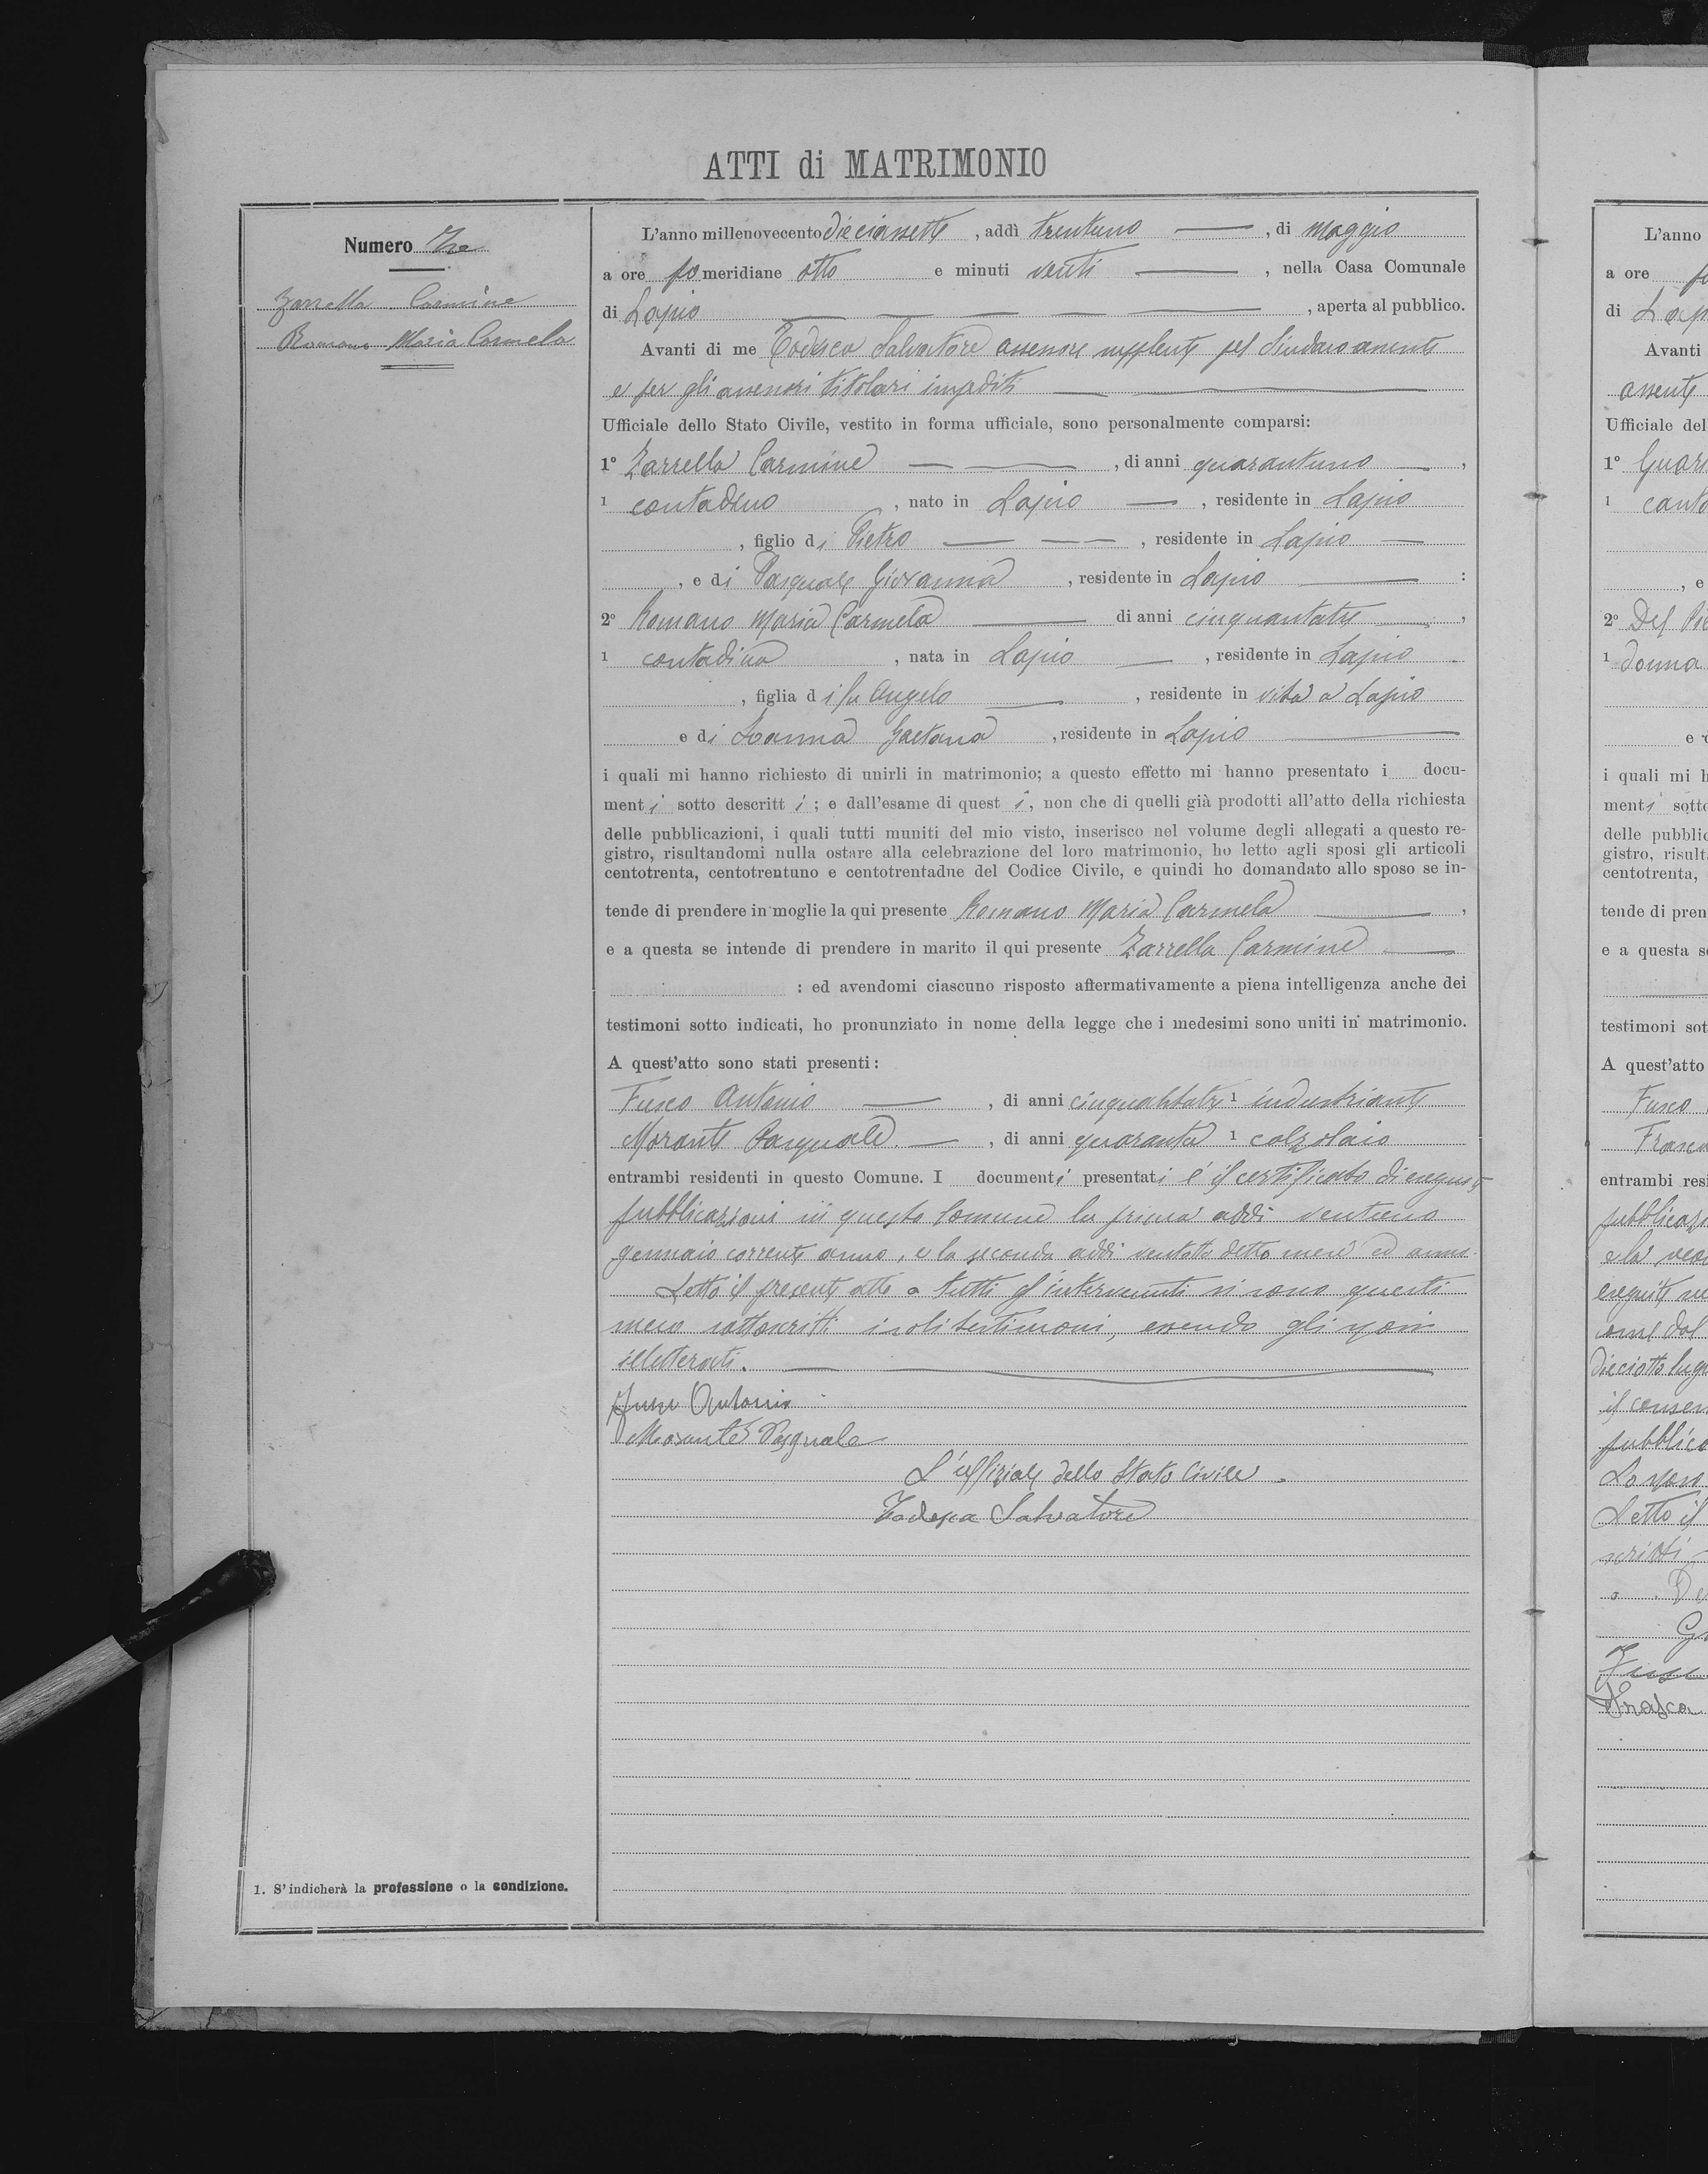 ATTI di MATRIMONIO
Numero Tre
Zarrella Carmine
Romano Maria Carmela
L'anno millenovecento diecisette, addì trentuno, di maggio
a ore pomeridiane otto e minuti venti, nella Casa Comunale
di Lapio, aperta al pubblico.
Avanti di me Todesca Salvatore assessore supplente pel Sindaco assente
e per gli assessori titolari impediti
Ufficiale dello Stato Civile, vestito in forma ufficiale, sono personalmente comparsi:
1º Zarrella Carmine, di anni quarantuno,
1 contadino, nato in Lapio, residente in Lapio
, figlio di Pietro, residente in Lapio
, e di Pasquale Giovanna, residente in Lapio :
2º Romano Maria Carmela di anni cinquantatre,
1 contadina, nata in Lapio, residente in Lapio
, figlia di fu Angelo, residente in vita a Lapio
e di Ioanna Gaetana, residente in Lapio
i quali mi hanno richiesto di unirli in matrimonio; a questo effetto mi hanno presentato i docu-
menti sotto descritti; e dall'esame di questi, non che di quelli già prodotti all'atto della richiesta
delle pubblicazioni, i quali tutti muniti del mio visto, inserisco nel volume degli allegati a questo re-
gistro, risultandomi nulla ostare alla celebrazione del loro matrimonio, ho letto agli sposi gli articoli
centotrenta, centotrentuno e centotrentadue del Codice Civile, e quindi ho domandato allo sposo se in-
tende di prendere in moglie la qui presente Romano Maria Carmela,
e a questa se intende di prendere in marito il qui presente Zarrella Carmine
: ed avendomi ciascuno risposto affermativamente a piena intelligenza anche dei
testimoni sotto indicati, ho pronunziato in nome della legge che i medesimi sono uniti in matrimonio.
A quest'atto sono stati presenti:
Fusco Antonio, di anni cinquantatre 1 industriante
Morante Pasquale, di anni quaranta 1 calzolaio
entrambi residenti in questo Comune. I documenti presentati è il certificato di eseguite
pubblicazioni in questo Comune la prima addì ventuno
gennaio corrente anno, e la seconda addì ventotto detto mese ed anno.
Letto il presente atto a tutti gl'intervenuti si sono questi
meco sottoscritti i soli testimoni, essendo gli sposi
illetterati.
Fusco Antonio
Morante Pasquale
L'Uffiziale dello Stato Civile
Todesca Salvatore
1. S'indicherà la professione o la condizione.
L'anno
a ore
di Lap
Avanti
assente
Ufficiale del
1º Guar
1 conta
, e
2º Del Pie
1 donna
e
i quali mi h
menti sotto
delle pubblic
gistro, risult
centotrenta,
tende di pren
e a questa s
testimoni sot
A quest'atto
Fusco
Frasca
entrambi resi
pubblicaz
e la seco
eseguite
come dal
dieciotto lug
il consen
pubblica
Lo sposo
Letto il
scritti
De
G
Fusc
Frasca